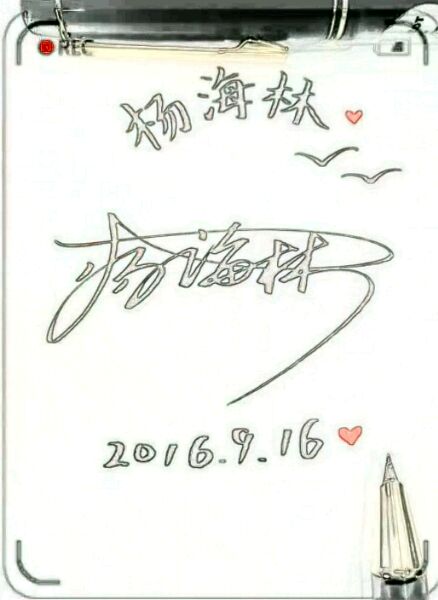 REC
杨海林
杨海林
2016.9.16